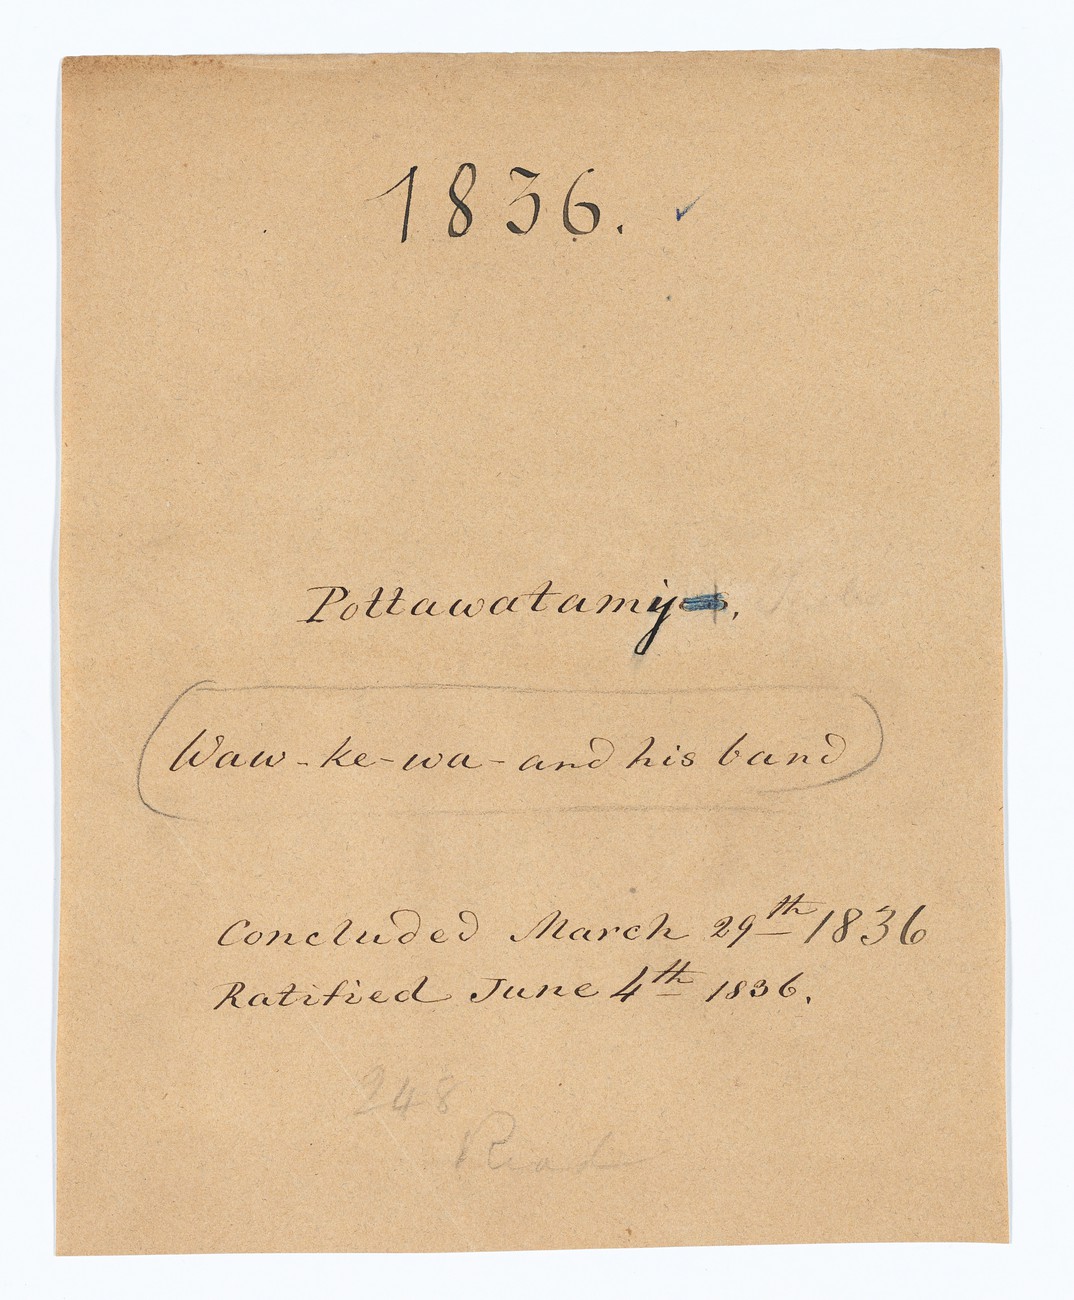 1836. ✓
Pottawatamy,
Waw-ke-wa-and his band
Concluded March 29th 1836
Ratified June 4th 1836.
248
Read